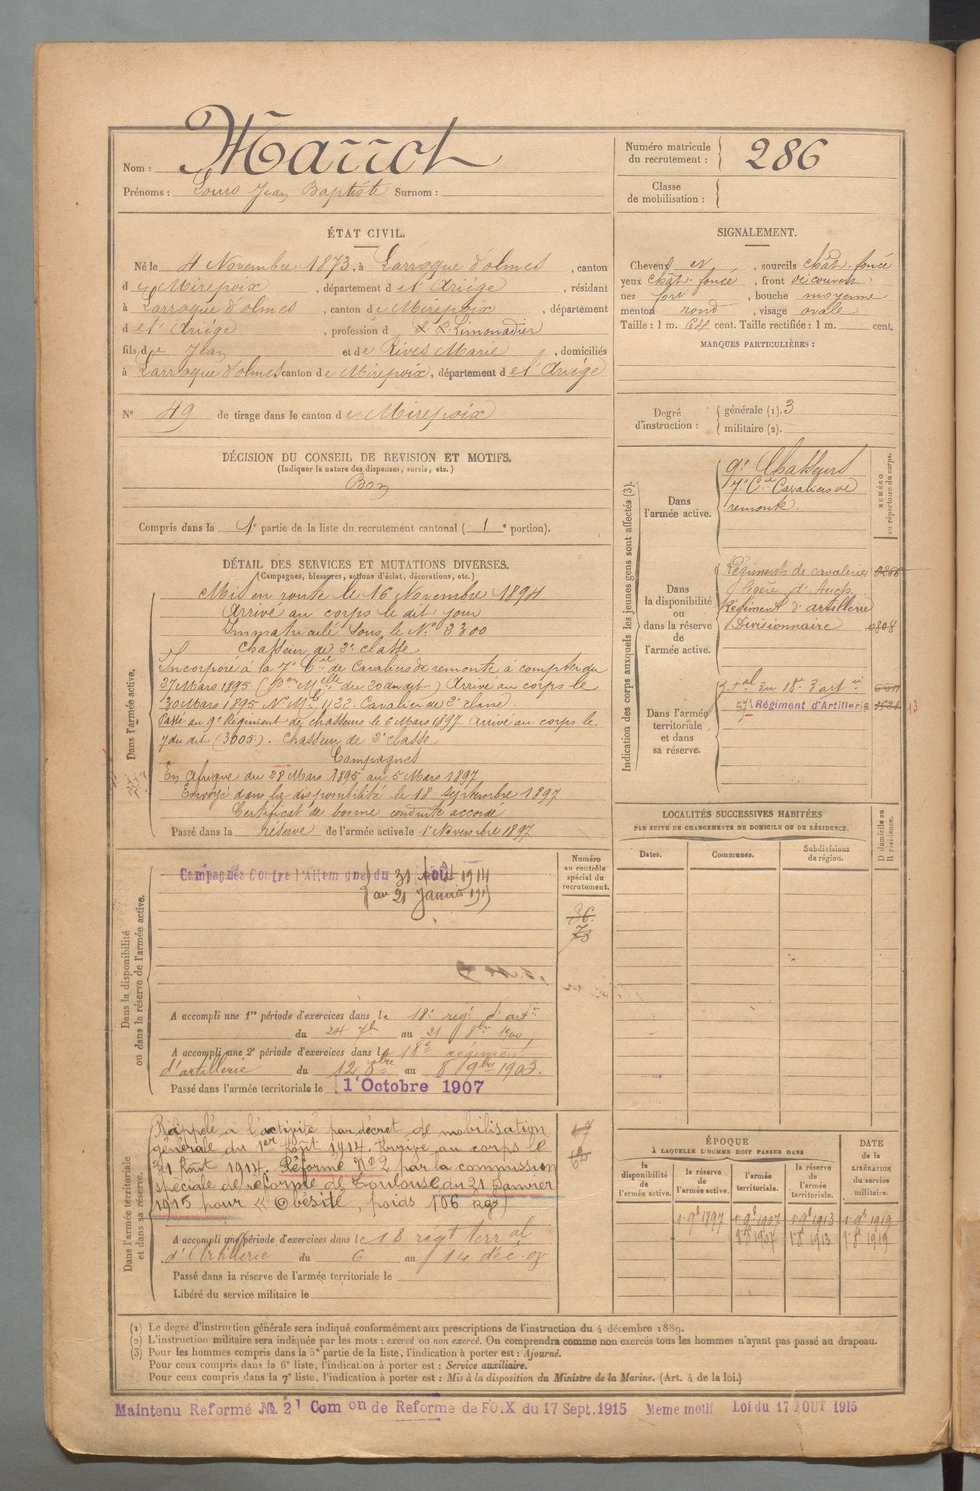 Nom : Marrot
Prénoms : Louis Jean Baptiste Surnom :
ÉTAT CIVIL.
Né le 4 Novembre 1873, à Larroque d'olmes, canton
de Mirepoix, département de l'Ariège, résidant
à Larroque d'olmes, canton de Mirepoix, département
de l'Ariège, profession de Limonadier
fils de Jean et de Rives Marie, domiciliés
à Larroque d'olmes, canton de Mirepoix, département de l'Ariège
N° 49 de tirage dans le canton de Mirepoix
DÉCISION DU CONSEIL DE REVISION ET MOTIFS.
(Indiquer la nature des dispenses, sursis, etc.)
Bon
Compris dans la 1e partie de la liste du recrutement cantonal (1e portion).
DÉTAIL DES SERVICES ET MUTATIONS DIVERSES.
(Campagnes, blessures, actions d'éclat, décorations, etc.)
Dans l'armée active.
Mis en route le 16 Novembre 1894
Arrivé au corps le dit jour
Immatriculé sous le N° 3300
Chasseur de 2e classe
Incorporé à la 7e Cie de Cavaliers de remonte à compter du
27 Mars 1895 Arrivé au corps le
30 Mars 1895 N° Mle 1122. Cavalier de 2e classe.
Passé au 9e Régiment de chasseurs le 6 Mars 1897 arrivé au corps le
7 du dit (3005). Chasseur de 2e classe
Campagnes
En Afrique du 28 Mars 1895 au 5 Mars 1897
Envoyé dans la disponibilité le 18 Septembre 1897
Certificat de bonne conduite accordé
Passé dans la réserve de l'armée active le 1er Novembre 1897
Dans la disponibilité
ou dans la réserve de l'armée active.
Campagnes Contre l'Allemagne du 31 Août 1914
au 21 Janvier 1915
Numéro
au contrôle
spécial du
recrutement.
36
73
A accompli une 1re période d'exercices dans le 18e rég. d'artie
du 24 7bre au 21 8bre 1900
A accompli une 2e période d'exercices dans le 18e régiment
d'artillerie du 12 8bre au 8 9bre 1903.
Passé dans l'armée territoriale le 1er Octobre 1907
Dans l'armée territoriale
et dans sa réserve.
Rappelé à l'activité par décret de mobilisation
générale du 1er Août 1914. Arrivé au corps le
31 Août 1914. Réformé N° 2 par la commission
spéciale de réforme de Toulouse du 21 Janvier
1915 pour « Obésité, poids 106 kgs)
A accompli une période d'exercices dans le 18 régt terral
d'Artillerie du 6 au 14 déc. 08
Passé dans la réserve de l'armée territoriale le
Libéré du service militaire le
Numéro matricule
du recrutement : 286
Classe
de mobilisation :
SIGNALEMENT.
Cheveux et, sourcils chât. foncé
yeux chât. foncé, front découvert
nez fort, bouche moyenne
menton rond, visage ovale
Taille : 1 m. 64 cent. Taille rectifiée : 1 m. cent.
MARQUES PARTICULIÈRES :
Degré
d'instruction :
générale (1). 3
militaire (2).
Indication des corps auxquels les jeunes gens sont affectés (3).
NUMÉRO
au répertoire du corps.
Dans
l'armée active.
9e Chasseurs
7e Cie Cavaliers de
remonte
Dans
la disponibilité
ou
dans la réserve
de
l'armée active.
Régiments de cavalerie
légère d'Auch
Régiment d'artillerie
Divisionnaire
Dans l'armée
territoriale
et dans
sa réserve.
57e Régiment d'Artillerie
13
LOCALITÉS SUCCESSIVES HABITÉES
PAR SUITE DE CHANGEMENTS DE DOMICILE OU DE RÉSIDENCE.
Dates.
Communes.
Subdivisions
de région.
D domicile ou
R résidence.
ÉPOQUE
À LAQUELLE L'HOMME DOIT PASSER DANS
la
disponibilité
de
l'armée active.
la réserve
de
l'armée active.
l'armée
territoriale.
la réserve
de
l'armée
territoriale.
DATE
de la
LIBÉRATION
du service
militaire.
1 9e 1897 1 9e 1907 1 9e 1913 1 9e 1919
1 8 1907 1 8 1913 1 8 1919
(1) Le degré d'instruction générale sera indiqué conformément aux prescriptions de l'instruction du 4 décembre 1889.
(2) L'instruction militaire sera indiquée par les mots : exercé ou non exercé. On comprendra comme non exercés tous les hommes n'ayant pas passé au drapeau.
(3) Pour les hommes compris dans la 5e partie de la liste, l'indication à porter est : Ajourné.
Pour ceux compris dans la 6e liste, l'indication à porter est : Service auxiliaire.
Pour ceux compris dans la 7e liste, l'indication à porter est : Mis à la disposition du Ministre de la Marine. (Art. 4 de la loi.)
Maintenu Reformé № 2 Com on de Reforme de FOIX du 17 Sept. 1915 Meme motif Loi du 17 AOUT 1915